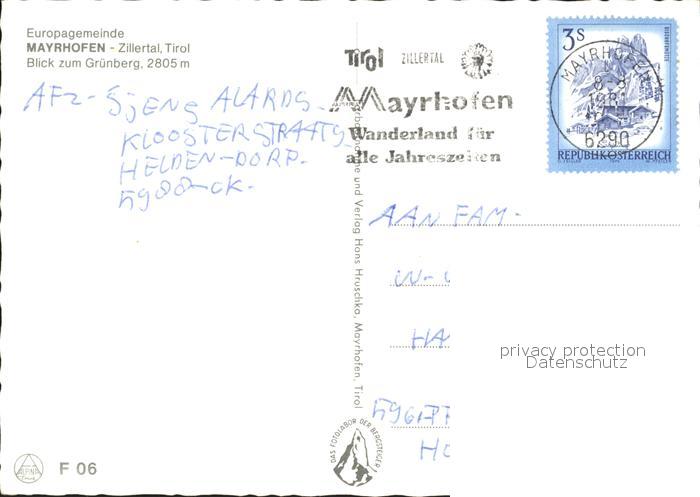 Europagemeinde
MAYRHOFEN - Zillertal, Tirol
Blick zum Grünberg, 2805 m
AFZ- SJENG ALARDS-
KLOOSTERSTRAAT
HELDEN-DORP.
5988-CK.
Tirol ZILLERTAL
Mayrhofen
Wanderland für
alle Jahreszeiten
3s
MAYRHOFEN
6290
REPUBLIK ÖSTERREICH
und Verlag Hans Hruschka, Mayrhofen, Tirol
AAN FAM-
W-
HA
privacy protection
Datenschutz
5961-
HO
DAS FOTOLABOR DER BERGSTEIGER
ALPINA
F 06